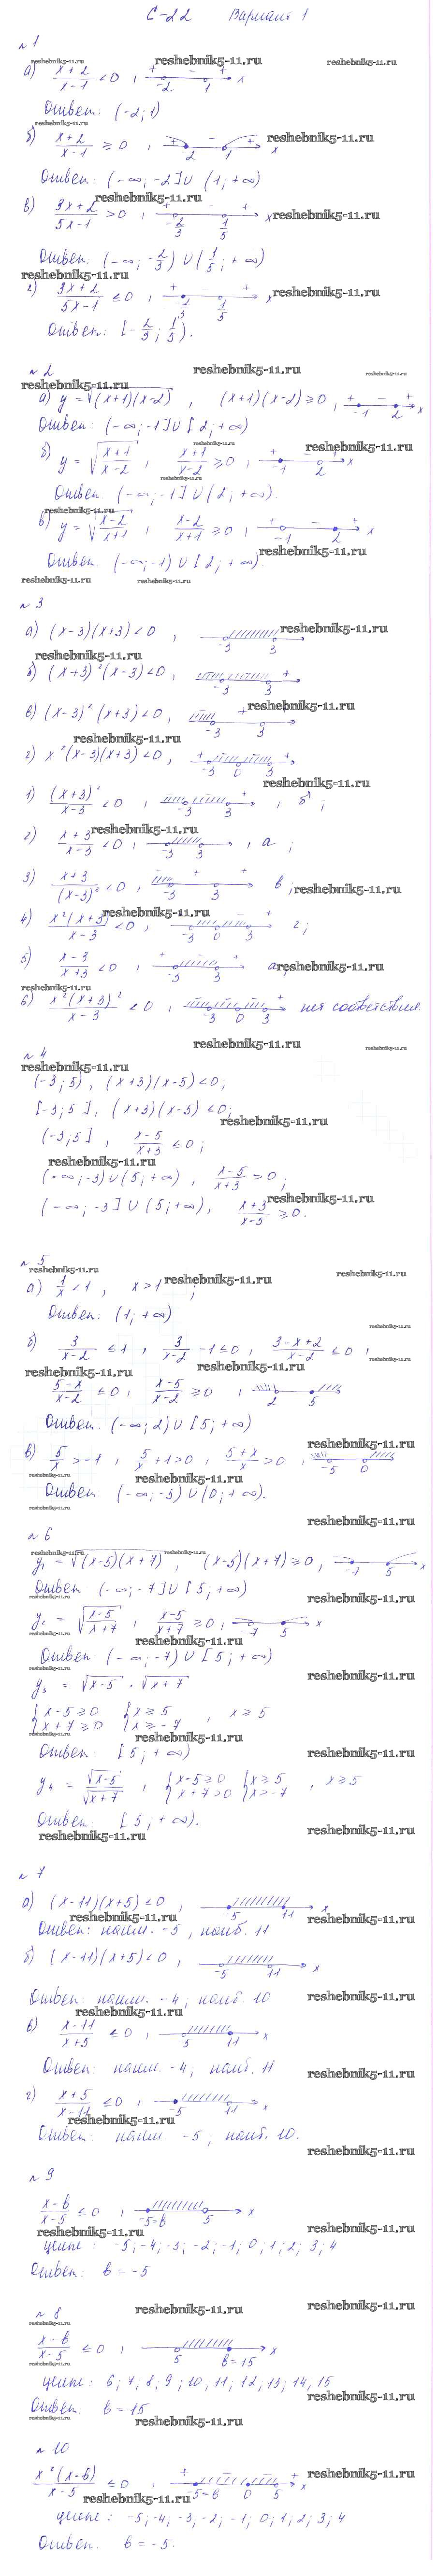 С-22 Вариант 1
№1
а) (x+2)/(x-1) < 0, + - + -2 1 x
Ответ: (-2; 1)
б) (x+2)/(x-1) ≥ 0, + - + -2 1 x
Ответ: (-∞; -2] ∪ (1; +∞)
в) (3x+2)/(5x-1) > 0, + - + -2/3 1/5 x
Ответ: (-∞; -2/3) ∪ (1/5; +∞)
г) (3x+2)/(5x-1) ≤ 0, + - + -2/3 1/5 x
Ответ: [-2/3; 1/5).
№2
а) y = √((x+1)(x-2)), (x+1)(x-2) ≥ 0, + - + -1 2 x
Ответ: (-∞; -1] ∪ [2; +∞)
б) y = √((x+1)/(x-2)), (x+1)/(x-2) ≥ 0, + - + -1 2 x
Ответ. (-∞; -1] ∪ (2; +∞).
в) y = √((x-2)/(x+1)), (x-2)/(x+1) ≥ 0, + - + -1 2 x
Ответ. (-∞; -1) ∪ [2; +∞).
№3
а) (x-3)(x+3) < 0, -3 3
б) (x+3)²(x-3) < 0, -3 3 +
в) (x-3)²(x+3) < 0, + -3 3
г) x²(x-3)(x+3) < 0, + - - + -3 0 3
1) (x+3)²/(x-3) < 0, -3 3 +, б;
2) (x+3)/(x-3) < 0, -3 3, а;
3) (x+3)/(x-3)² < 0, - + + -3 3 в;
4) x²(x+3)/(x-3) < 0, -3 0 3 + г;
5) (x-3)/(x+3) < 0, + - + -3 3 а;
6) x²(x+3)²/(x-3) < 0, -3 0 3 + нет соответствия.
№4
(-3; 5), (x+3)(x-5) < 0;
[-3; 5], (x+3)(x-5) ≤ 0;
(-3; 5], (x-5)/(x+3) ≤ 0;
(-∞; -3) ∪ (5; +∞), (x-5)/(x+3) > 0;
(-∞; -3] ∪ (5; +∞), (x+3)/(x-5) ≥ 0.
№5
а) 1/x < 1, x > 1;
Ответ: (1; +∞)
б) 3/(x-2) ≤ 1, 3/(x-2) - 1 ≤ 0, (3-x+2)/(x-2) ≤ 0,
(5-x)/(x-2) ≤ 0, (x-5)/(x-2) ≥ 0, 2 5
Ответ. (-∞; 2) ∪ [5; +∞)
в) 5/x > -1, 5/x + 1 > 0, (5+x)/x > 0, -5 0
Ответ: (-∞; -5) ∪ (0; +∞).
№6
y₁ = √((x-5)(x+7)), (x-5)(x+7) ≥ 0, -7 5 x
Ответ (-∞; -7] ∪ [5; +∞)
y₂ = √((x-5)/(x+7)), (x-5)/(x+7) ≥ 0, -7 5 x
Ответ (-∞; -7) ∪ [5; +∞)
y₃ = √(x-5) · √(x+7)
{x-5 ≥ 0 {x ≥ 5, x ≥ 5
x+7 ≥ 0 x ≥ -7
Ответ: [5; +∞)
y₄ = √(x-5)/√(x+7), {x-5 ≥ 0 {x ≥ 5, x ≥ 5
x+7 > 0 x > -7
Ответ: [5; +∞).
№7
а) (x-11)(x+5) ≤ 0, -5 11 x
Ответ: наим. -5, наиб. 11
б) (x-11)(x+5) < 0, -5 11 x
Ответ: наим. -4; наиб. 10
в) (x-11)/(x+5) ≤ 0, -5 11 x
Ответ: наим. -4; наиб. 11
г) (x+5)/(x-11) ≤ 0, -5 11 x
Ответ: наим. -5; наиб. 10.
№9
(x-b)/(x-5) ≤ 0, -5=b 5 x
целые: -5; -4; -3; -2; -1; 0; 1; 2; 3; 4
Ответ: b = -5
№8
(x-b)/(x-5) ≤ 0, 5 b=15 x
целые: 6; 7; 8; 9; 10; 11; 12; 13; 14; 15
Ответ: b = 15
№10
x²(x-b)/(x-5) ≤ 0, + - - + -5=b 0 5 x
целые: -5; -4; -3; -2; -1; 0; 1; 2; 3; 4
Ответ. b = -5.
reshebnik5-11.ru